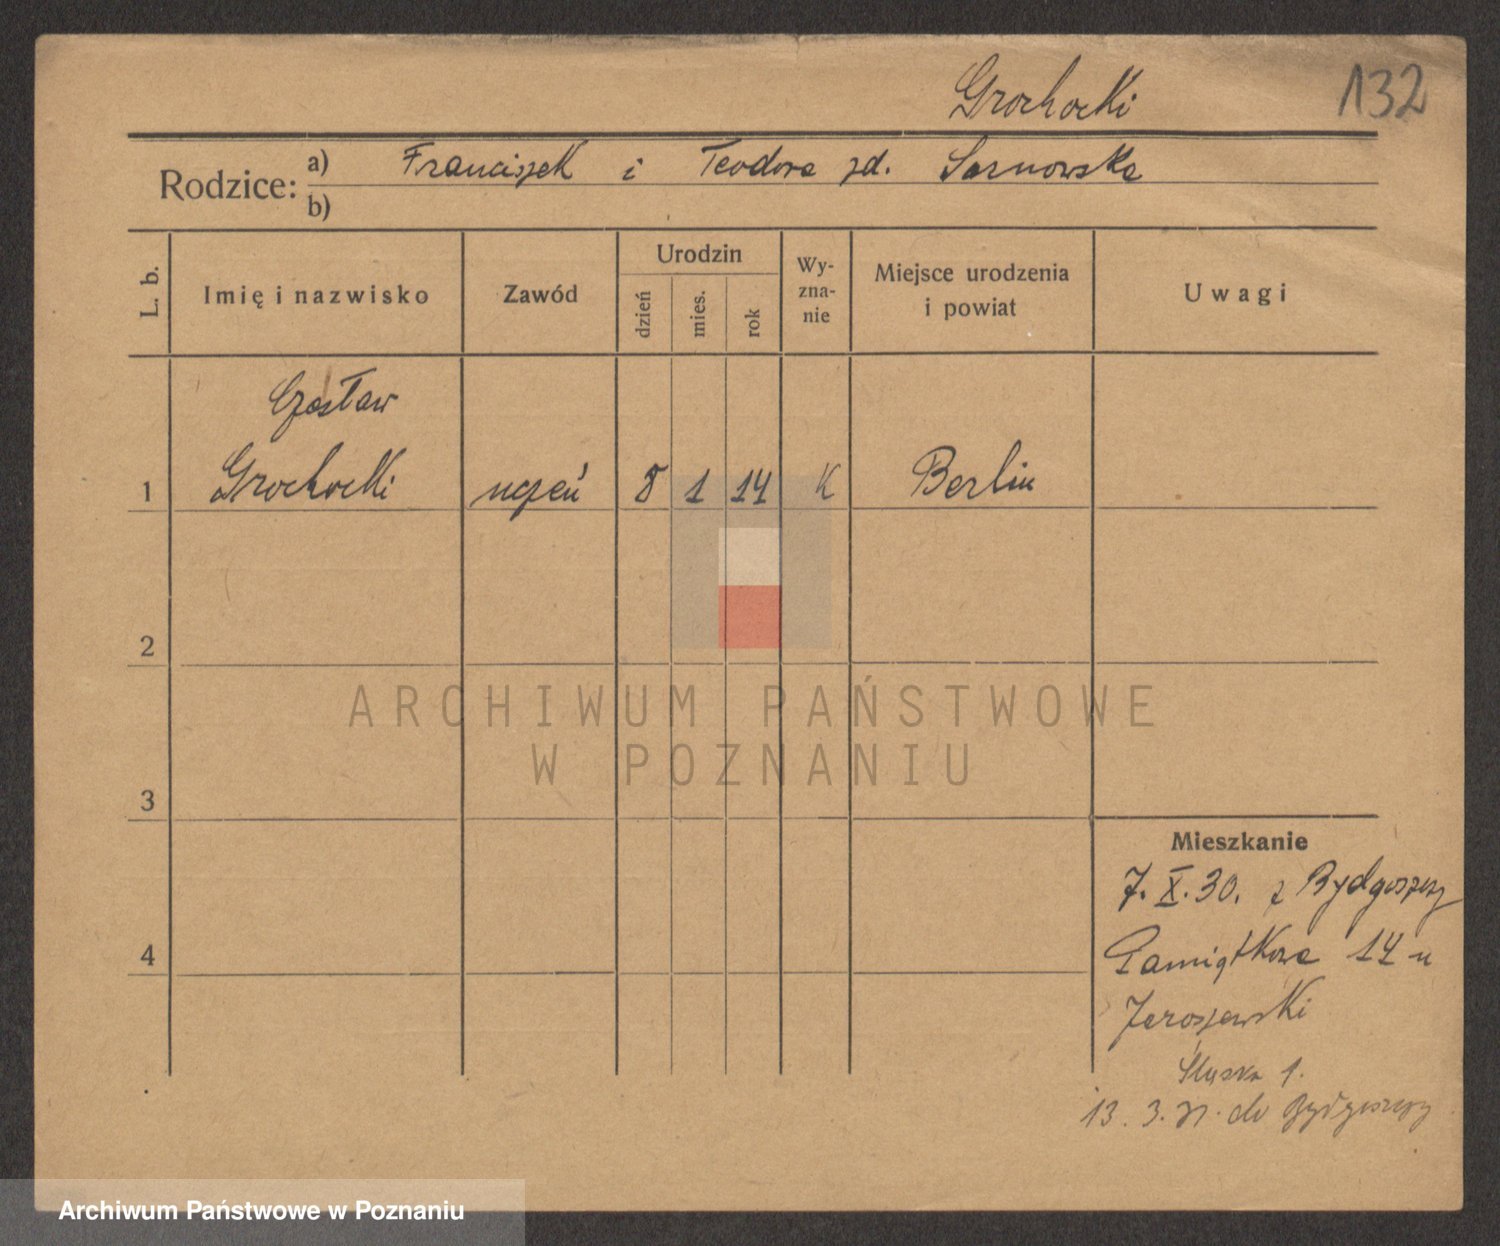 Grochocki 132
Rodzice: a) Franciszek i Teodora zd. Sarnowska
b)
L. b.
Imię i nazwisko
Zawód
Urodzin
dzień
mies.
rok
Wy-
zna-
nie
Miejsce urodzenia
i powiat
Uwagi
Czesław
1 Grochocki uczeń 8 1 14 K Berlin
2
ARCHIWUM PAŃSTWOWE
W POZNANIU
3
Mieszkanie
7. X. 30. z Bydgoszczy
4 Pamiątkowa 14 u
Jaroszewski
Śluska 1.
13. 3. 31. do Bydgoszczy
Archiwum Państwowe w Poznaniu